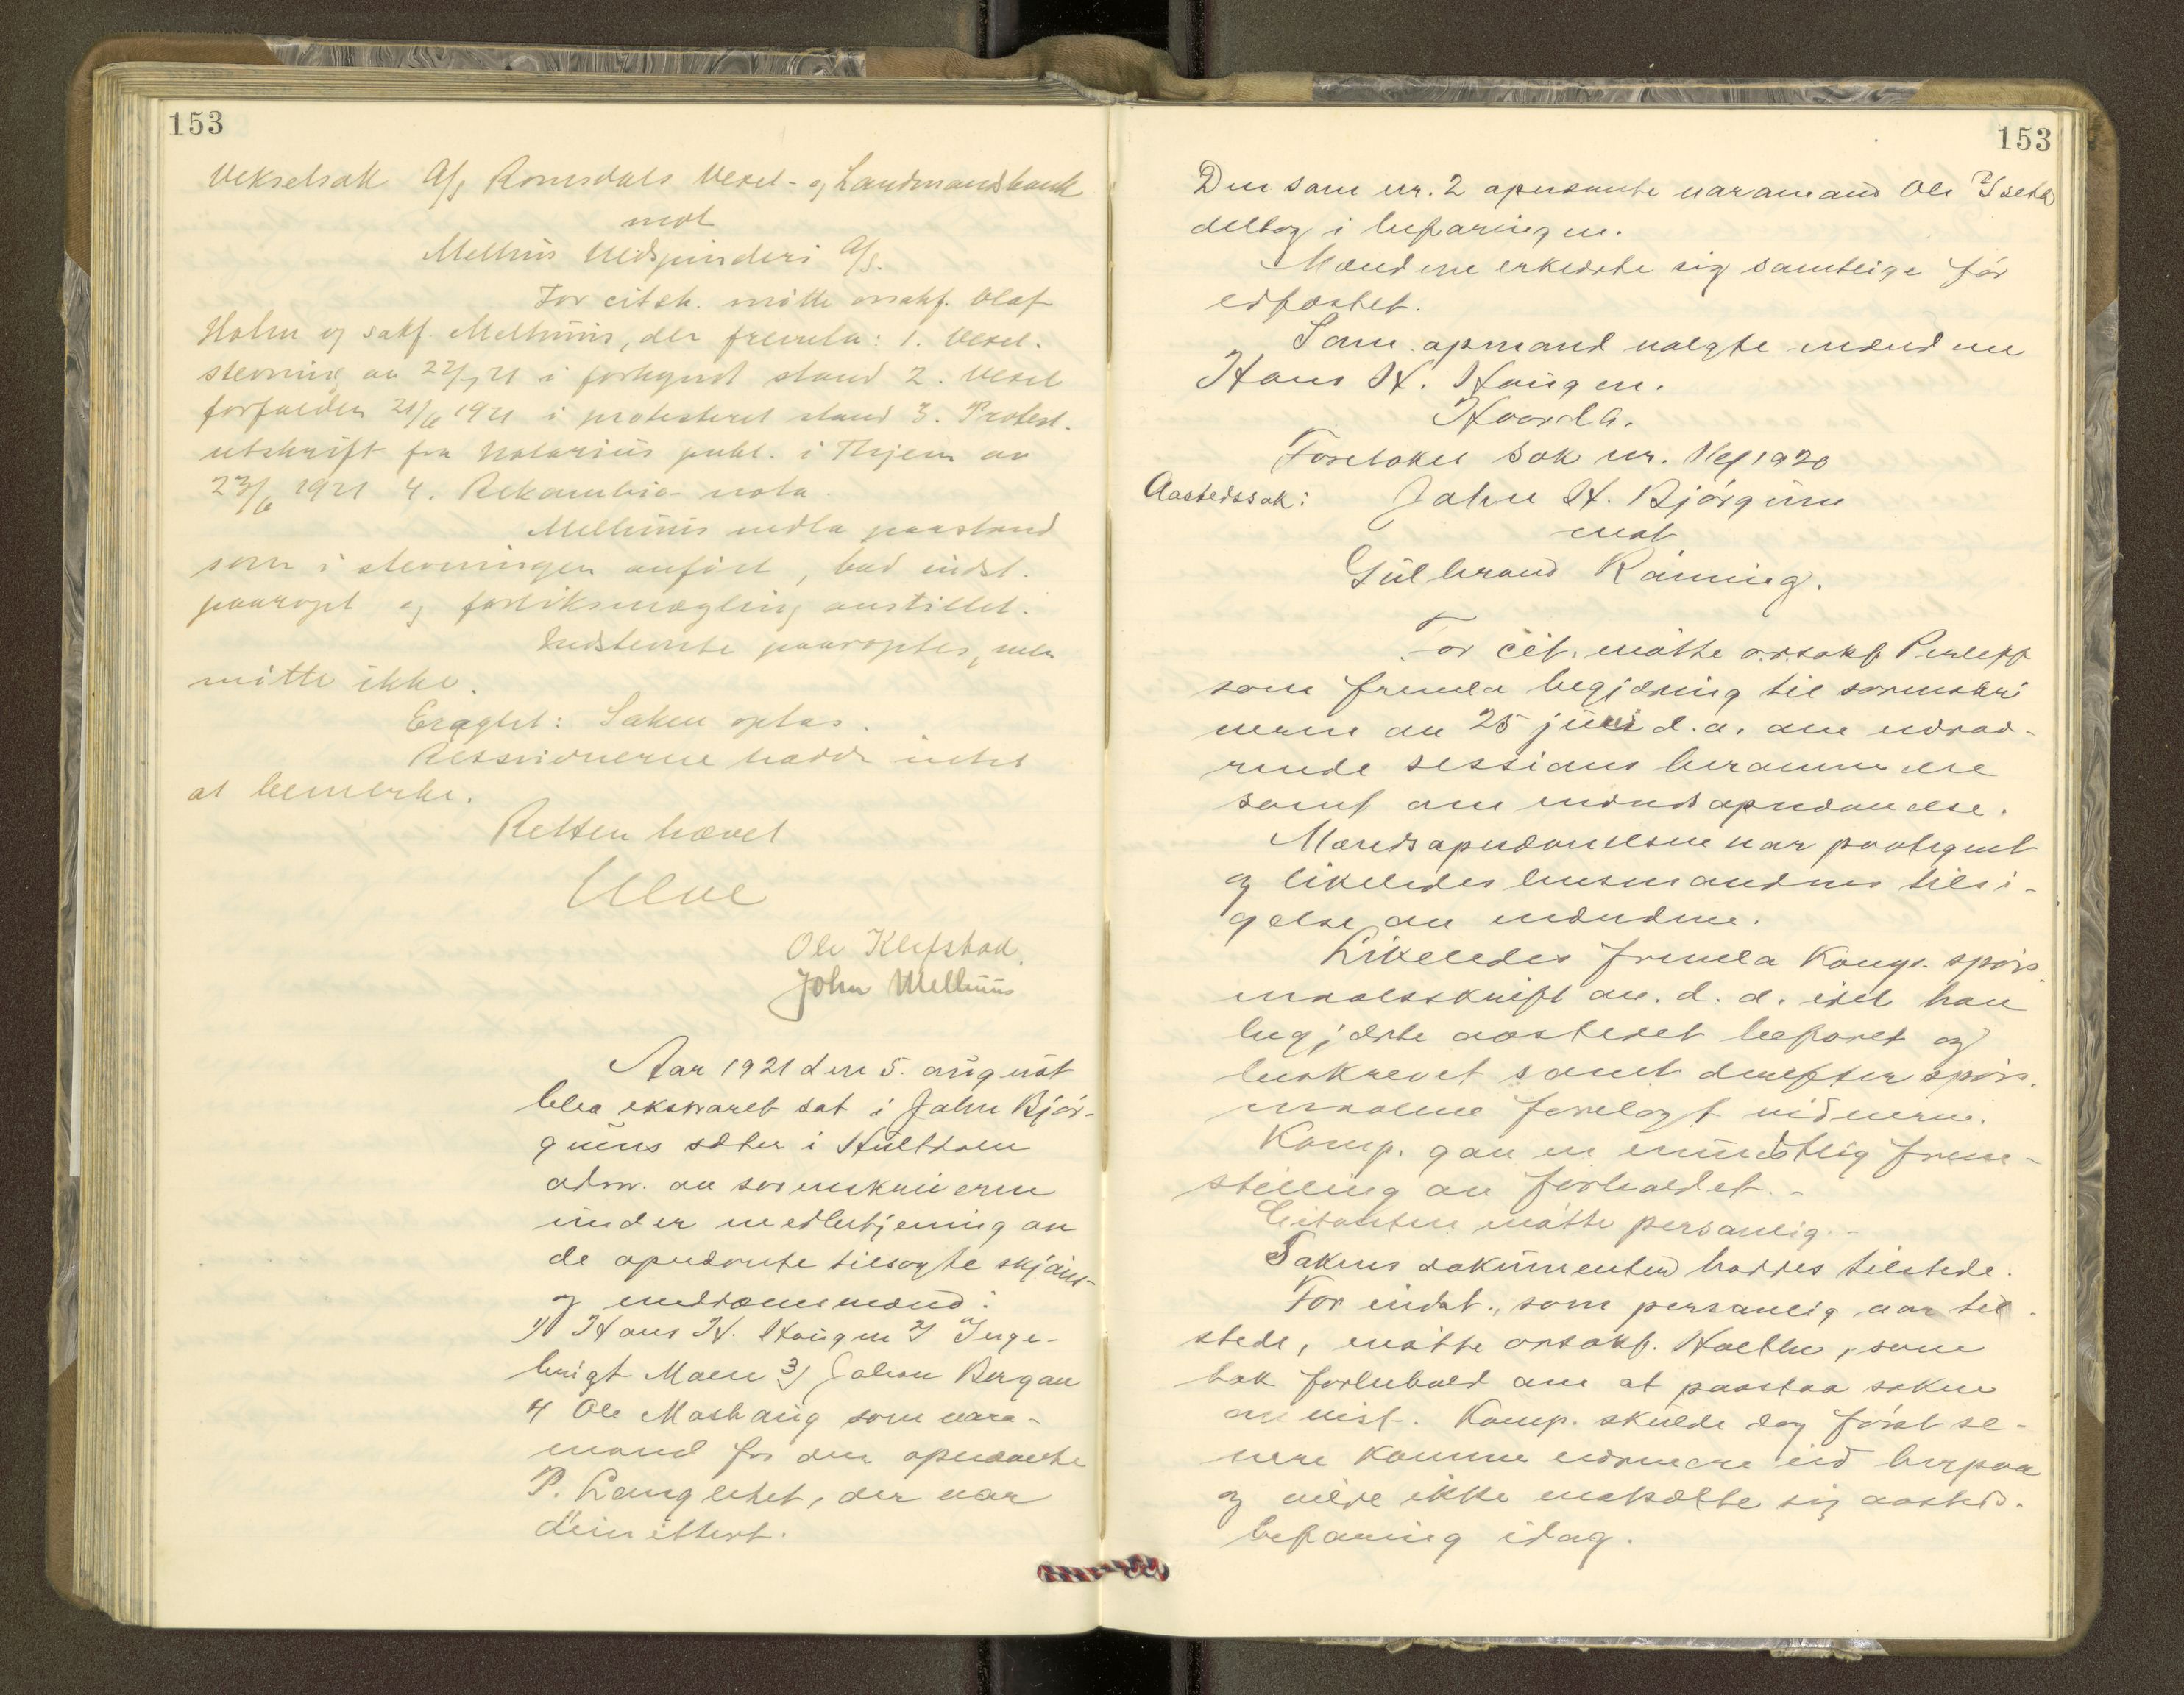 153
Vekselsak A/S Romsdals Vexel- og Landmandsbank
mot
Melhus Uldspinderi A/S.
For citsk. mötte orsakf. Olaf
Holm og sakf. Melhuus, der fremla: 1. Vexel-
stevning av 22/7 21 i forkyndt stand 2. Vexel
forfalden 21/6 1921 i protesteret stand 3. Protest-
utskrift fra Notarius publ. i Thjem av
23/6 1921 4. Rekambio-nota.
Melhuus nedla paastand
som i stevningen anfört, bad indst.
paaropt og forliksmægling anstillet.
Indstevnte paaroptes, men
mötte ikke.
Eragtet: Saken optas.
Retsvidnerne hadde intet
at bemerke.
Retten hævet
Ulve
Ole Klefstad.
John Melhuus
Aar 1921 den 5. august
blev ekstraret sat i John Björ-
guns sæter i Hultdalen
adm. av sorenskriveren
under medbetjening av
de opnævnte tilsagte skjöns-
og meddomsmænd:
1) Hans H. Haugen 2) Inge-
brigt Moen 3) Johan Bergan
4 Ole Moshaug som vara-
mand for den opnævnte
P. Langletet, der var
dimittert.
153
Den som nr. 2 opnævnte varamand Ole Ysetd
deltog i befaringen.
Mændene erklærte sig samtlige för
edfæstet.
Som opmand valgte mændene
Hans H. Haugen.
Hvorda.
Foretokes sak nr. 1920
Aastedssak: John H. Björgum
mot
Gulbrand Rönning.
For cit. mötte o.r.sakf. Perlepp
som fremla begjæring til sorenskri
veren av 25 juni d.a. om nærvæ-
rende sessions berammelse
samt om mændsopnævnelse.
Mændsopnævnelsen var paategnet
og likeledes lensmandens tilsi-
gelse av mændene.
Likeledes fremla Komp. spörs
maalsskrift av d. d. idet han
begjærte aastedet befaret og
beskrevet samt derefter spörs-
maalene forelagt vidnerne.
Komp. gav en mundtlig frem-
stilling av forholdet.-
Citanten mötte personlig.-
Sakens dokumenter haddes tilstede.
For indst., som personlig var til-
stede, mötte orsakf. Holthe, som
tok forbehold om at paastaa saken
avvist. Komp. skulde dog först se-
nere komme nærmere ind herpaa
og vilde ikke motsætte sig aasteds-
befaring idag.